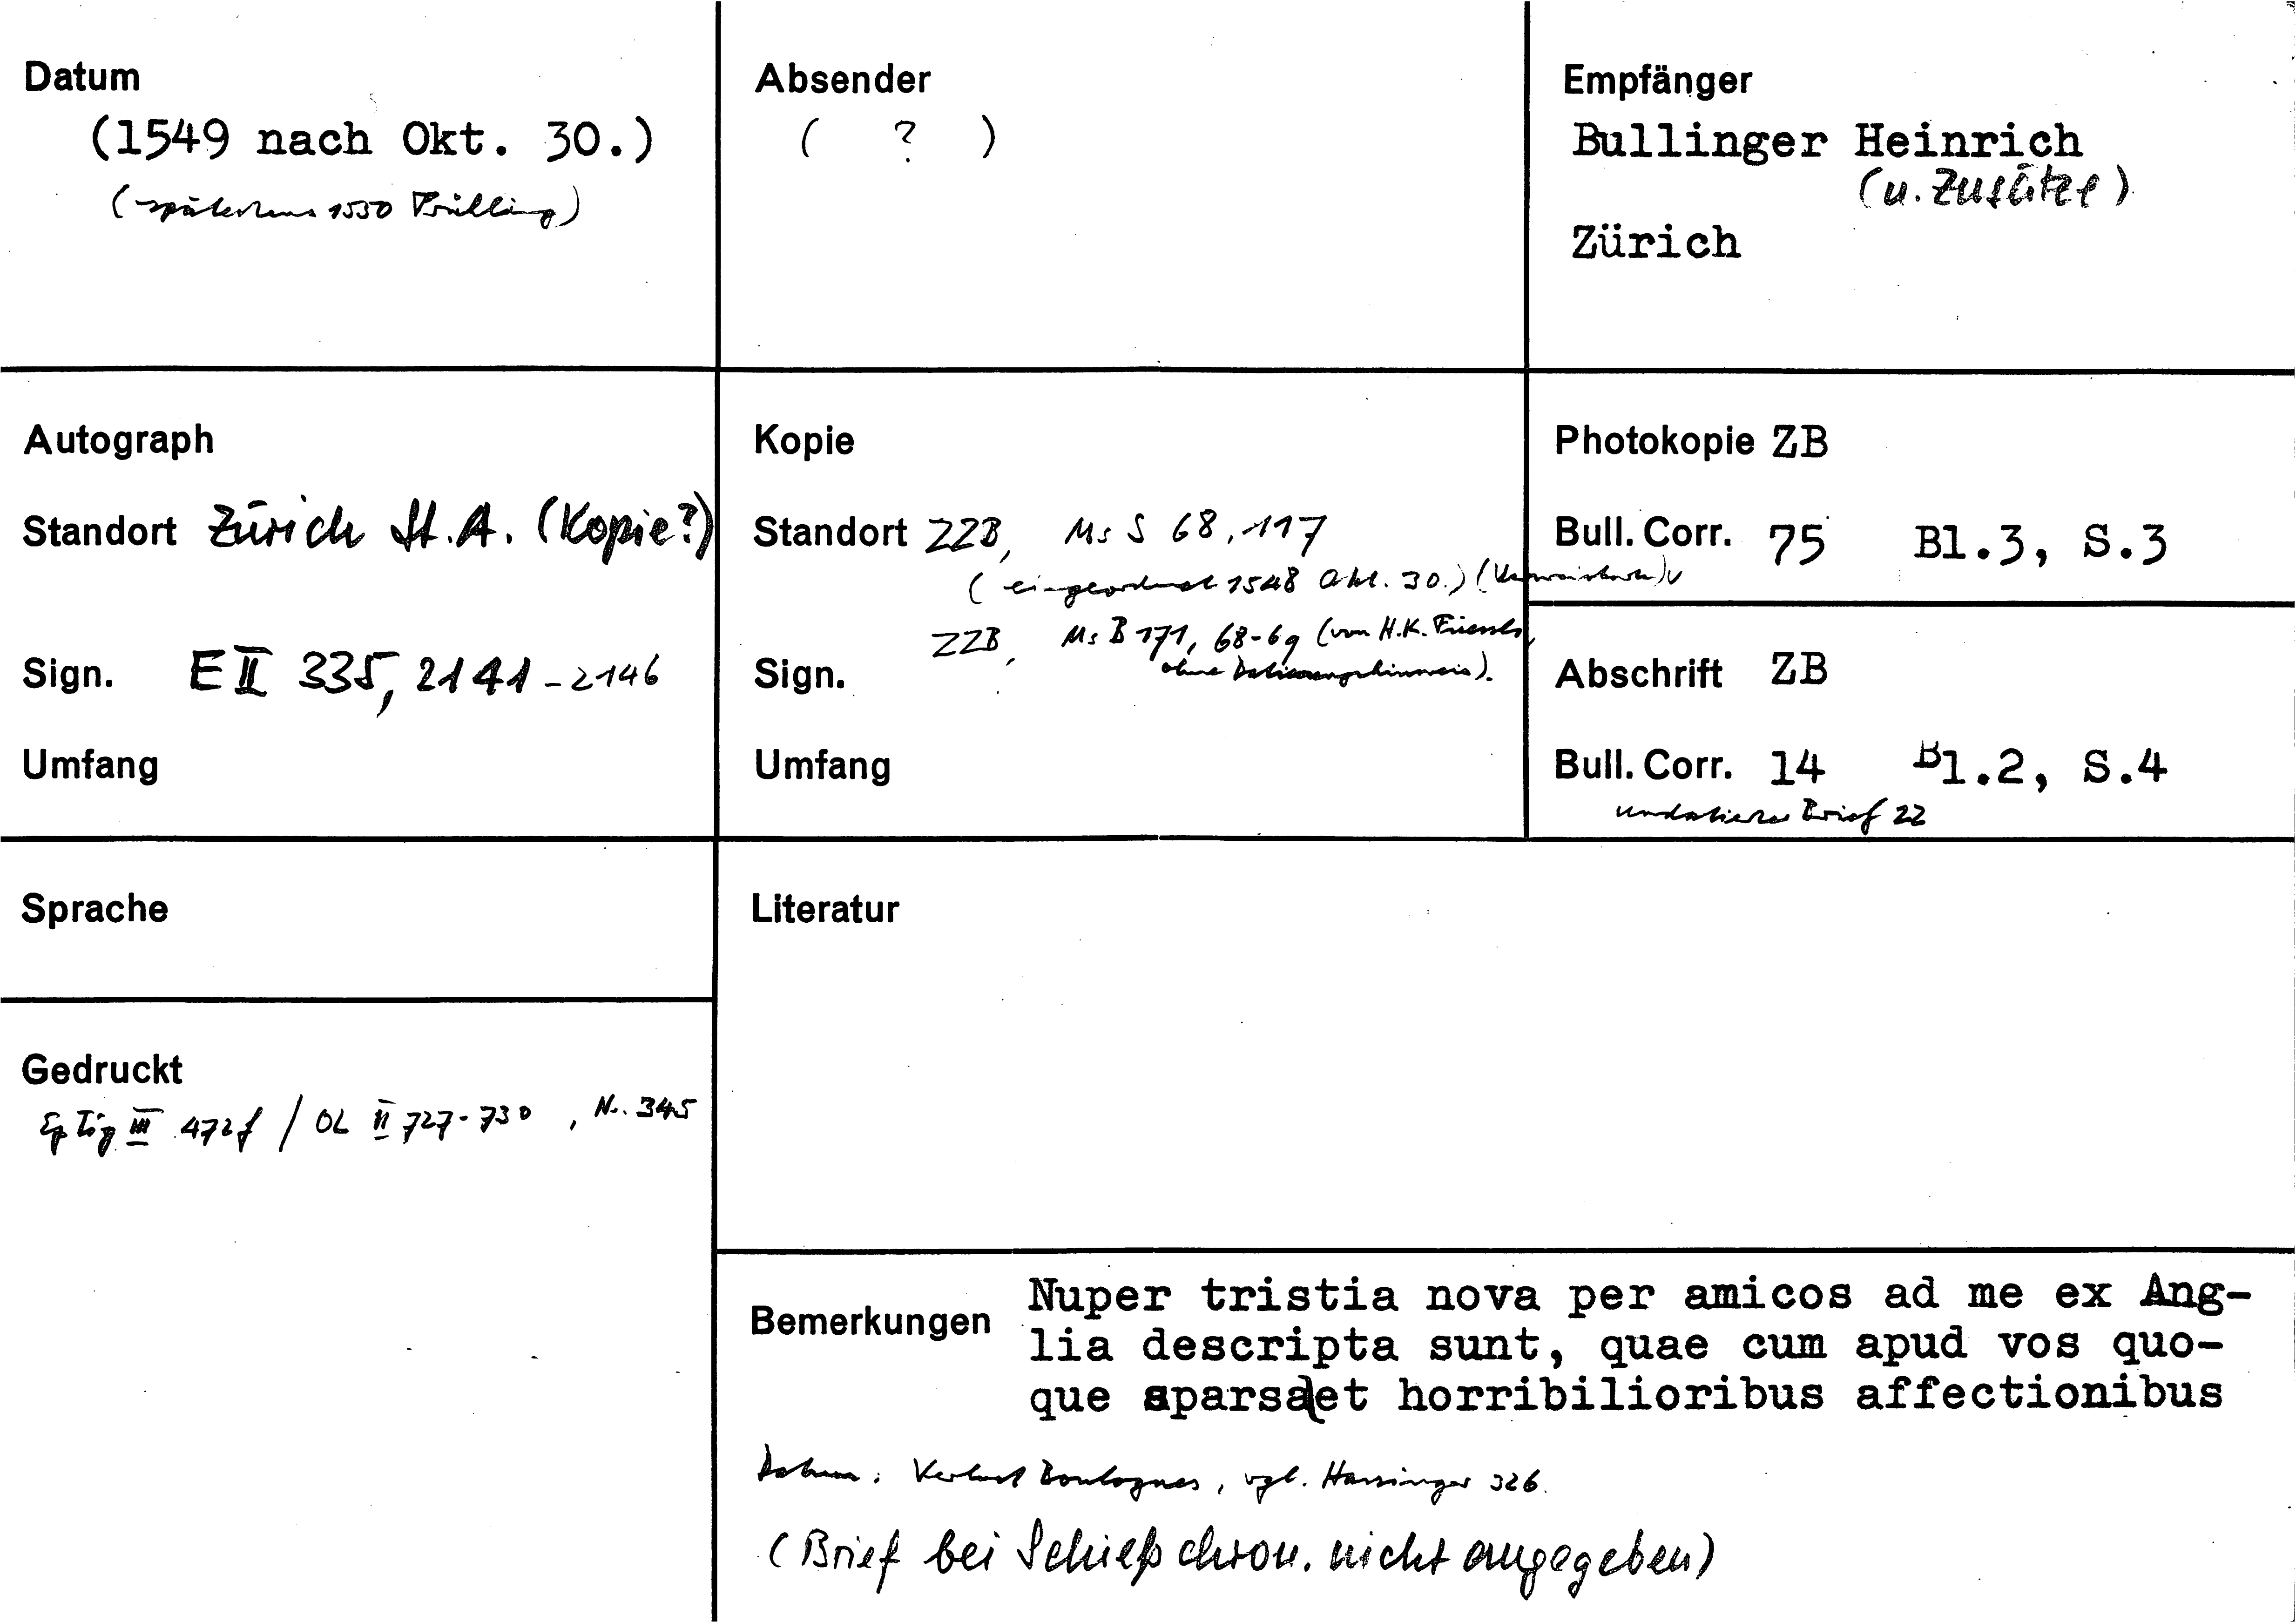 Datum
(1549 nach Okt. 30.)
(spätestens 1550 Frühling)
Absender
( ? )
Empfänger
Bullinger Heinrich
(u. Zusätze)
Zürich
Autograph
Standort Zürich St.A. (Kopie?)
Sign. E II 335, 2141-2146
Umfang
Kopie
Standort ZZB, Ms S 68, 117
(eingeordnet 1548 Okt. 30.)
ZZB, Ms B 171, 68-69 (von H.K.
ohne Datierungshinweis).
Sign.
Umfang
Photokopie ZB
Bull. Corr. 75 Bl.3, S.3
Abschrift ZB
Bull. Corr. 14 Bl.2, S.4
undatierter Brief 22
Sprache
Literatur
Gedruckt
Ep Tig III 472f / OL II 727-730, Nr. 345
Bemerkungen
Nuper tristia nova per amicos ad me ex Ang-
lia descripta sunt, quae cum apud vos quo-
que sparsa et horribilioribus affectionibus
Datum: Verlust Boulognes, vgl. Hassinger 326.
(Brief bei Schieß chron. nicht angegeben)